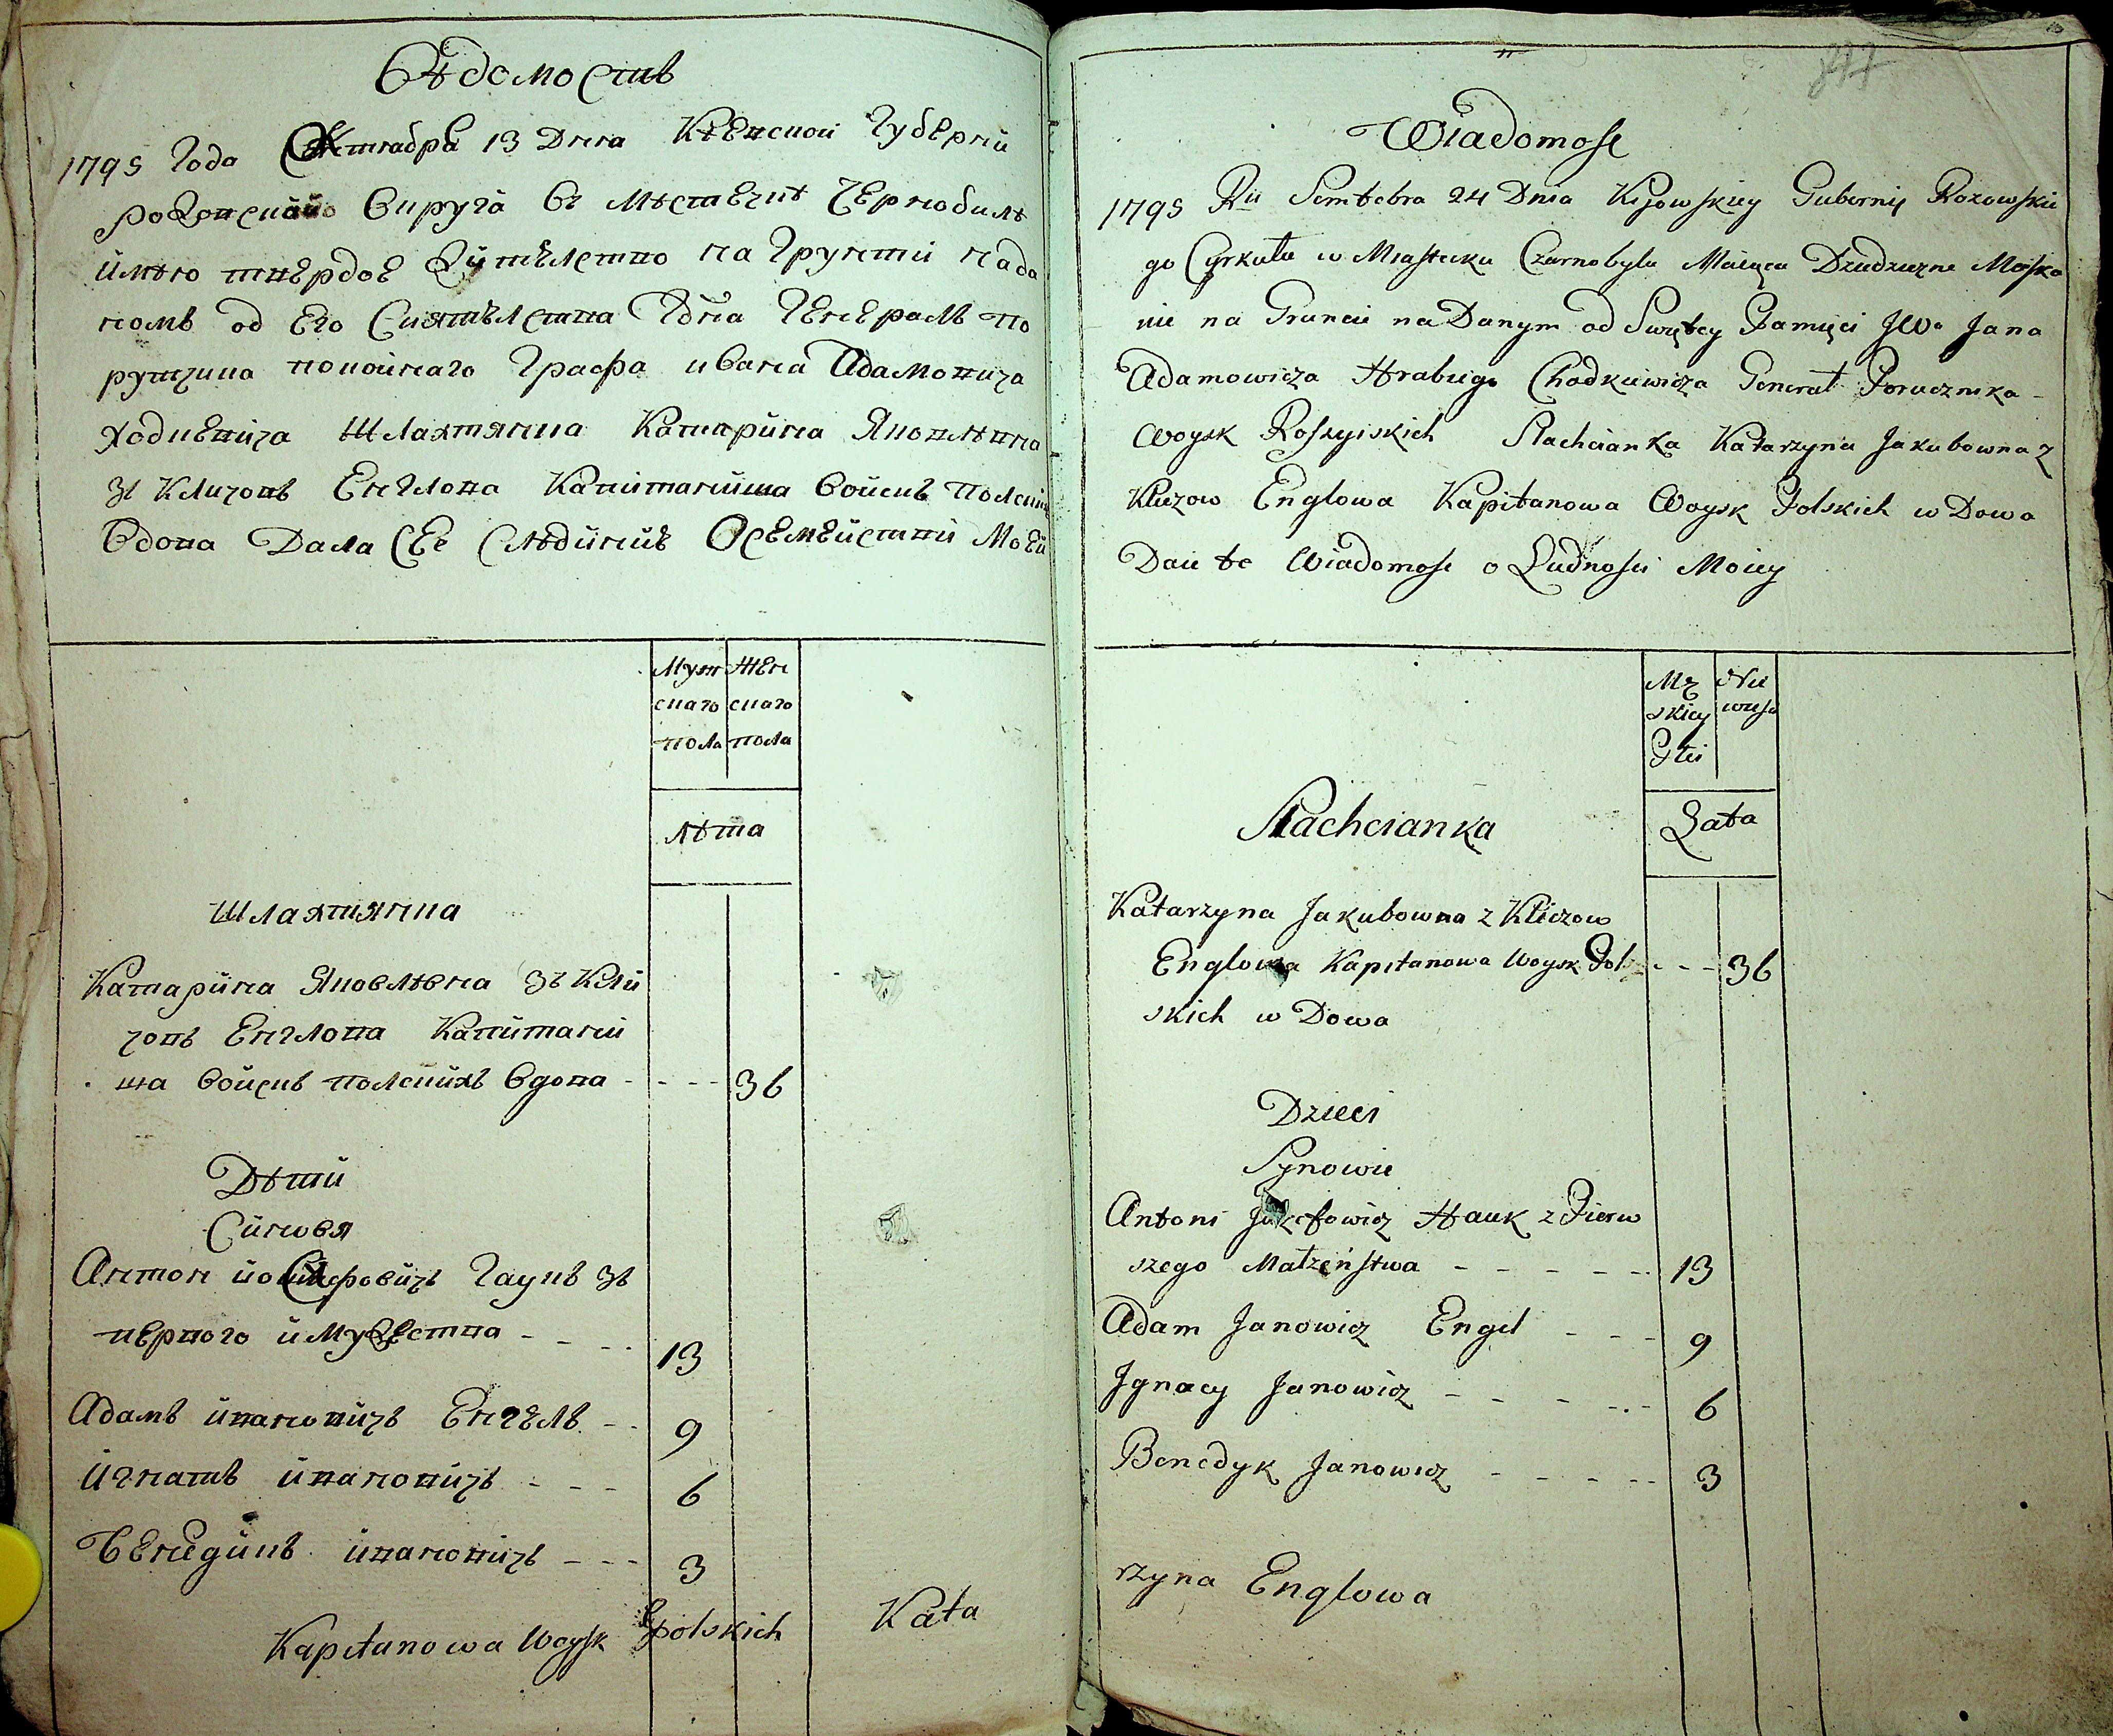 Вѣдомость
1795 Года Октабра 13 Дня Кіевской Губерніи
имѣю твердое Жителство на Грунтй нада
номъ од Его Сиятелства Гдна Генералъ по
рутчика покойнаго Графа ивана Адамовича
Ходкевича Шляхтянка Катарйна Яковлѣвна
зъ Кличовъ Енглова Капитанйша войскъ Полскі
Вдова Дала Сее О Семействѣ Моей
Муж Жен
скаго скаго
пола пола
лѣта
Шляхтянка
Катарйна Яковлѣвна Зъ Клй
човъ Енглова Капйтанй
ша войскъ полскйхъ Вдова - - - - 36
Дѣтй
Сйновя
Антон йосифовйчъ Гаукъ зъ
первого - - - 13
Адамъ йвановйчъ Енгель - - 9
Йгнатъ йвановйчъ - - - 6
Бенедйкъ йвановйчъ - - - 3
Kapitanowa Woysk Polskich Kata
Wiadomosc
1795 Ru Semtebra 24 Dnia Kijowskiey Gubernij
go Cyrkułu w Miasteczku Czarnobylu Maiąca Dziedziczne Meszka
nie na Gruncie na Danym od Swiętey Pamięci JWo Jana
Adamowicza Hrabiego Chodkiewicza Generał Porucznika -
Woysk Rossyiskich Slachcianka Katarzyna Jakubowna z
Kliczow Englowa Kapitanowa Woysk Polskich w Dowa
Daie te Wiadomosc o Ludnosci Moiey
Mę Nie
skiey wiesc
Płci
Lata
Slachcianka
Katarzyna Jakubowna z Kliczow
Englowa Kapitanowa Woysk Pol - - - 36
skich w Dowa
Dzieci
Synowie
Antoni Jozefowicz Hauk z Pierw
szego Małzeństwa - - - - - 13
Adam Janowicz Engel - - - 9
Jgnacy Janowicz - - - - - 6
Benedyk Janowicz - - - - - 3
rzyna Englowa